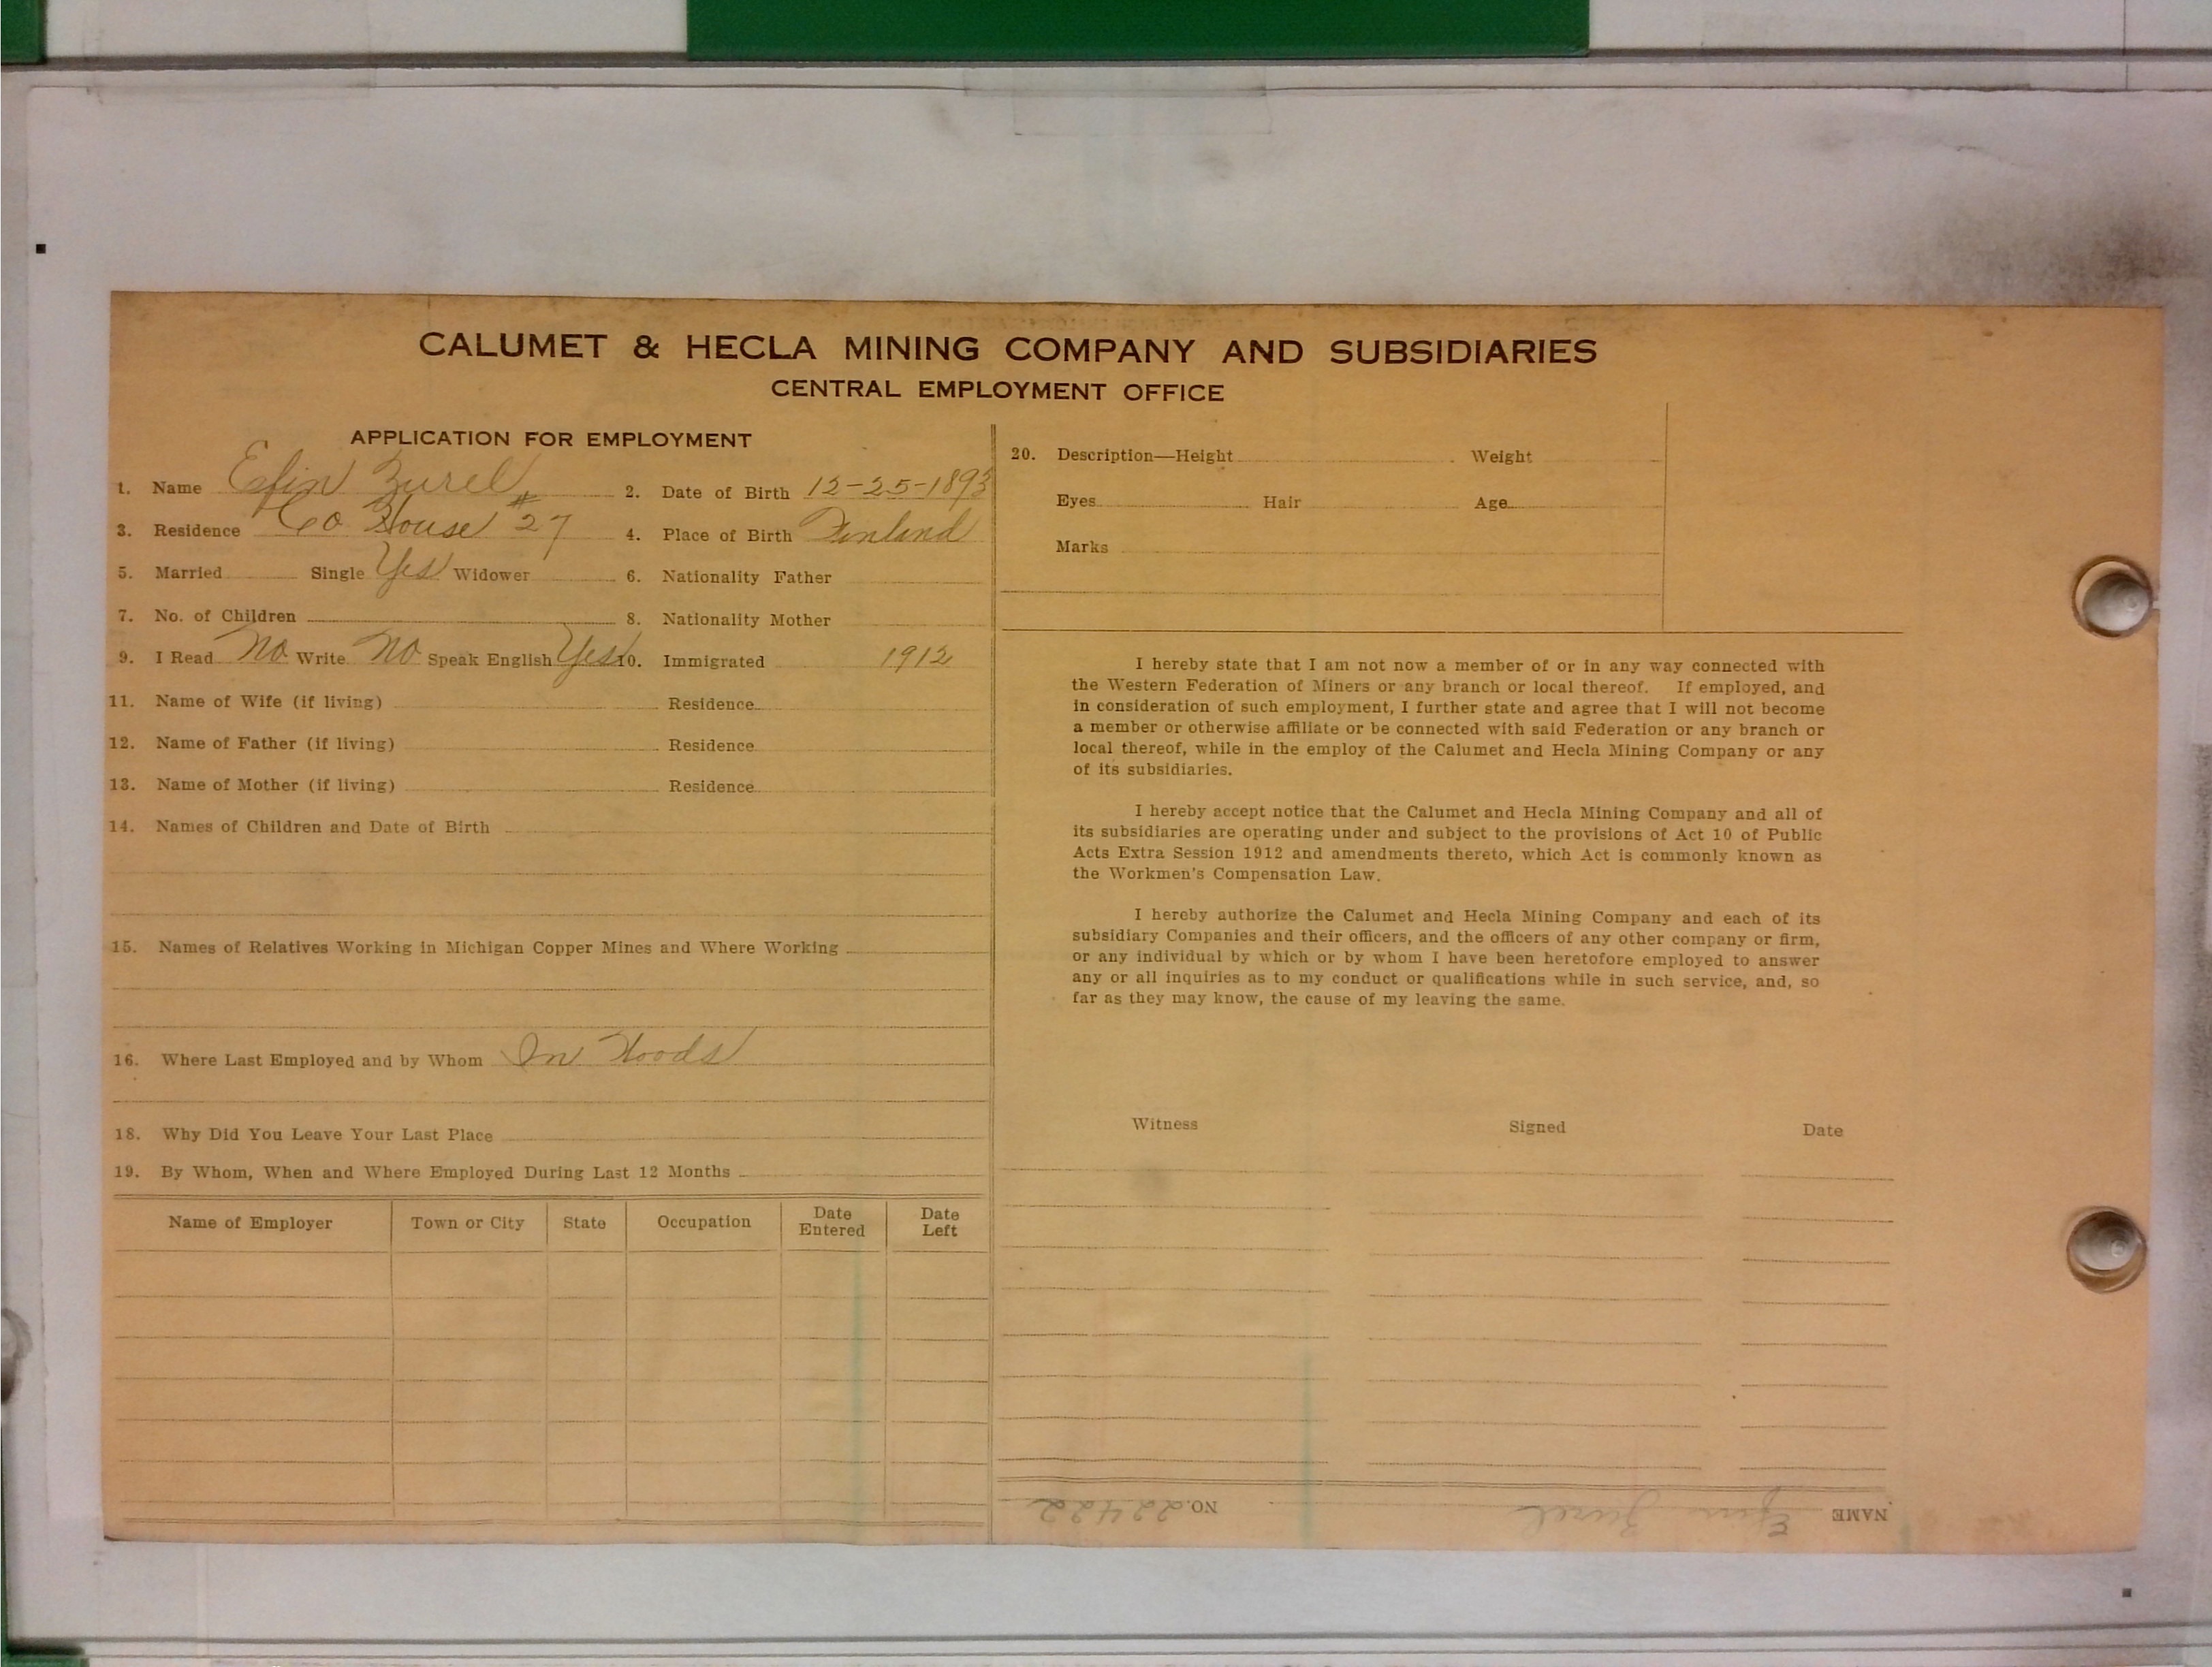 CALUMET & HECLA MINING COMPANY AND SUBSIDIARIES
CENTRAL EMPLOYMENT OFFICE
APPLICATION FOR EMPLOYMENT
1. Name Efin Zurel 2. Date of Birth 12-25-1893
3. Residence Co House #27 4. Place of Birth Finland
5. Married Single Yes Widower 6. Nationality Father
7. No. of Children 8. Nationality Mother
9. I Read No Write No Speak English Yes 10. Immigrated 1912
11. Name of Wife (if living) Residence
12. Name of Father (if living) Residence
13. Name of Mother (if living) Residence
14. Names of Children and Date of Birth
15. Names of Relatives Working in Michigan Copper Mines and Where Working
16. Where Last Employed and by Whom In Woods
18. Why Did You Leave Your Last Place
19. By Whom, When and Where Employed During Last 12 Months
Name of Employer Town or City State Occupation Date Entered Date Left
20. Description—Height Weight
Eyes Hair Age
Marks
I hereby state that I am not now a member of or in any way connected with
the Western Federation of Miners or any branch or local thereof. If employed, and
in consideration of such employment, I further state and agree that I will not become
a member or otherwise affiliate or be connected with said Federation or any branch or
local thereof, while in the employ of the Calumet and Hecla Mining Company or any
of its subsidiaries.
I hereby accept notice that the Calumet and Hecla Mining Company and all of
its subsidiaries are operating under and subject to the provisions of Act 10 of Public
Acts Extra Session 1912 and amendments thereto, which Act is commonly known as
the Workmen's Compensation Law.
I hereby authorize the Calumet and Hecla Mining Company and each of its
subsidiary Companies and their officers, and the officers of any other company or firm,
or any individual by which or by whom I have been heretofore employed to answer
any or all inquiries as to my conduct or qualifications while in such service, and, so
far as they may know, the cause of my leaving the same.
Witness Signed Date
NAME Efin Zurel NO. 22422